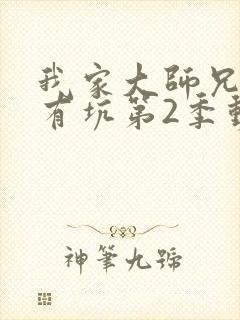 我家大師兄
有坑第2季動
神筆九號